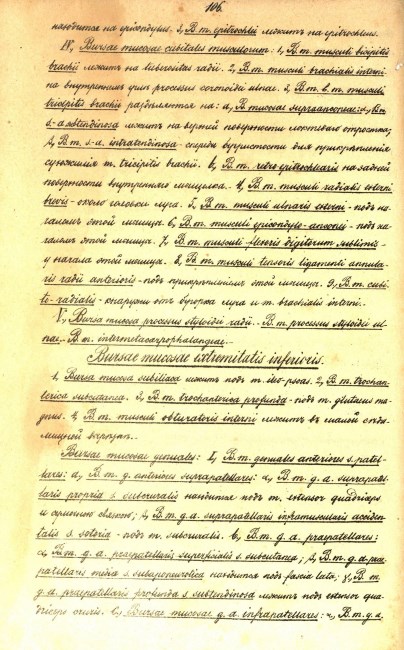 106.
находится на epicondylus. 2, B. m. epitrochlii лежитъ на epitrochleus.
IV, Bursae mucosae cubitales musculorum: 1, B. m. musculi bicipitis
brachii лежитъ на tuberositas radii. 2, B. m. musculi brachialis interni
на внутреннемъ processus coronoidei ulnae. 3, B. m. musculi
tricipitis brachii раздѣляется на: a, B. mucosae supraanconeae: α, B. m.
s-a subtendinosa лежитъ на верхней поверхности локтеваго отростка;
β, B. m. s-a. intratendinosa - спереди верхушки прикрѣпленія
сухожилія m. tricipitis brachii. b, B. m. retroepitrochlearis на задней
поверхности внутренняго мыщелка. 4, B. m. musculi radialis externi
brevis - около головки луча. 5, B. m. musculi ulnaris externi - подъ на-
чаломъ этой мышцы. 6, B. m. musculi epicondylo-anconei - подъ на-
чаломъ этой мышцы. 7, B. m. musculi flexoris digitorum sublimis -
у начала этой мышцы. 8, B. m. musculi tensoris ligamenti annula-
ris radii anterioris - подъ прикрѣпленіемъ этой мышцы. 9, B. m. cubi-
to-radialis - кнаружи отъ бугорка луча и m. brachialis interni.
V, Bursa mucosa processus styloidei radii. B. m. processus styloidei ul-
nae. B. m. intermetacarpophalangeae.
Bursae mucosae extremitatis inferioris.
1, Bursa mucosa subiliaca лежитъ подъ m. ileo-psoas. 2, B. m. trochan-
terica subcutanea. 3, B. m. trochanterica profunda - подъ m. glutaeus ma-
gnus. 4, B. m. musculi obturatoris interni лежитъ въ малой сѣда-
лищной вырѣзкѣ.
Bursae mucosae genuales: I, B. m. genuales anteriores s. patel-
lares: a, B. m. g. anteriores suprapatellares: α, B. m. g. a. suprapatel-
laris propria s. subcruralis находится подъ m. extensor quadriceps
и связкою; β, B. m. g. a. suprapatellaris inframuscularis acciden-
talis s. solaria - подъ m. subcruralis. b, B. m. g. a. praepatellares:
α, B. m. g. a. praepatellaris superficialis s. subcutanea; β, B. m. g. a. prae-
patellaris media s. subaponeurotica находится подъ fascia lata; γ, B. m.
g. a. praepatellaris profunda s. subtendinosa лежитъ подъ extensor qua-
driceps cruris. c, Bursae mucosae g. a. infrapatellares: α, B. m. g. a.